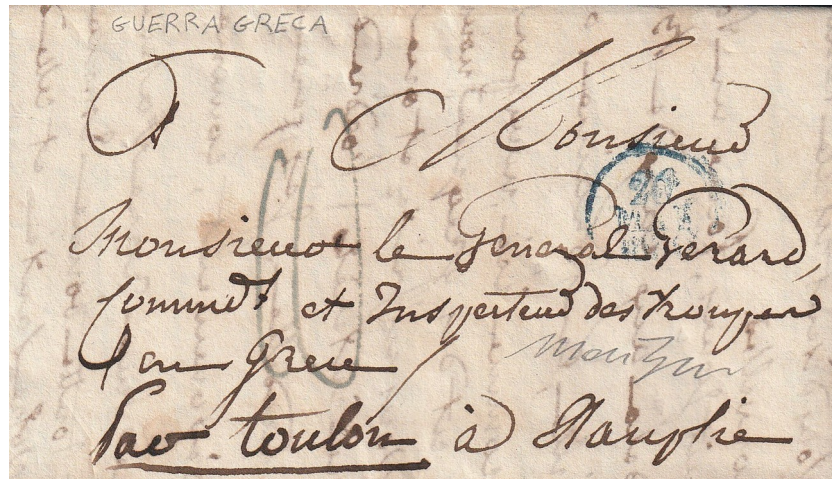 GUERRA GRECA
A Monsieur
20
MAI
Monsieur le General Gerard,
Commdt et Inspecteur des troupes
en Grece
Par toulon à Nauplie